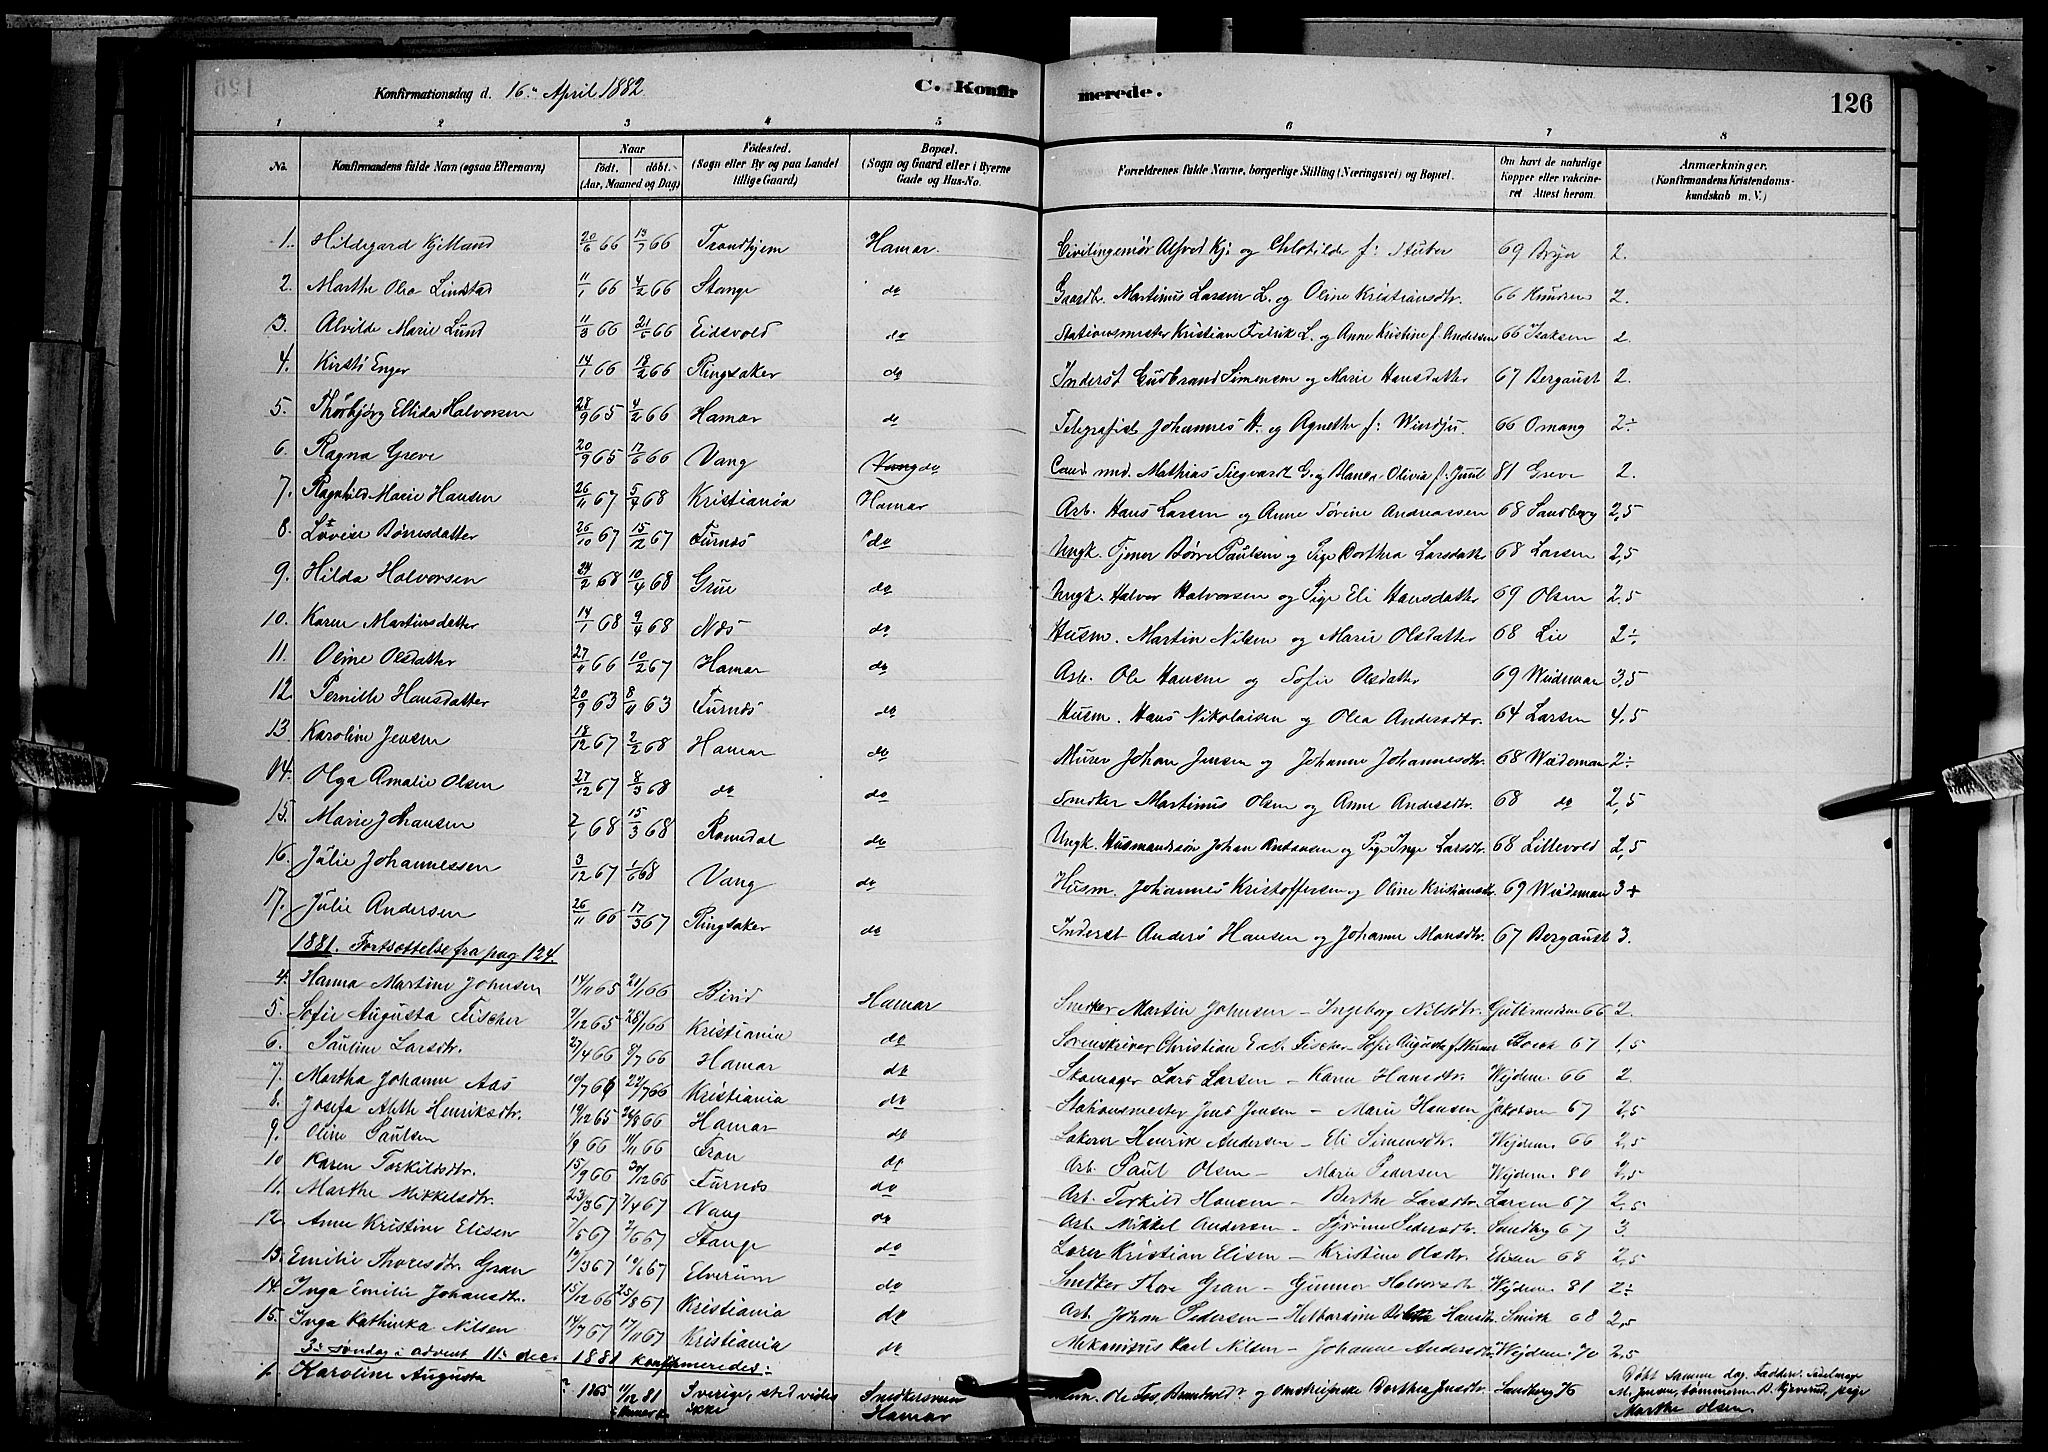 Konfirmationsdag d. 16. April 1882 C. Konfirmerede. 126
1 2 3 4 5 6 7 8
No. Konfirmandens fulde Navn (ogsaa Efternavn) Naar født. døbt. (Aar, Maaned og Dag) Fødested. (Sogn eller By og paa Landet tillige Gaard) Bopæl. (Sogn og Gaard eller i Byerne Gade og Hus-No. Forældrenes fulde Navne, borgerlige Stilling (Næringsvei) og Bopæl. Om havt de naturlige Kopper eller vakcineret Attest herom. Anmærkninger. (Konfirmandens Kristendomskundskab m. V.)
1. Hildegard Kjelland 20/6 66 13/7 66 Trondhjem Hamar. Civilingeniør Alfred Kj. og Chlotilde f: Stuber 69 Bryn 2.
2. Marthe Olea Lindstad 11/1 66 4/2 66 Stange do Gaardb. Martinus Larsen L. og Oline Kristiansdtr. 66 Knudsen 2.
3. Alvilde Marie Lund 11/3 66 21/5 66 Eidsvold do Stationsmester Kristian Fredrik L. og Anne Kristine f. Andersen 66 Isaksen 2.
4. Kirsti Enger 14/1 66 18/2 66 Ringsaker do Inderst Gudbrand Simensen og Marie Hansdatter 67 Bergaust 2.
5. Thorbjørg Ellida Halvorsen 28/9 65 4/2 66 Hamar do Telegrafist Johannes H. og Agnethe f: Windju. 66 Omang 2÷
6. Ragna Greve 20/9 65 17/6 66 Vang Vang do Cand med. Mathias Siegvardt G. og Hanna Olivia f: Juul 81 Greve 2.
7. Ragnhild Marie Hansen 26/11 67 5/4 68 Kristiania Hamar Arb. Hans Larsen og Anne Sørine Andreassen 68 Sandberg 2,5
8. Lovise Børresdatter 26/10 67 15/12 67 Furnes do Ungk. Tjener Børre Paulsen og Pige Dorthea Larsdatter 68 Larsen 2,5
9. Hilda Halvorsen 24/2 68 10/4 68 Grue do Ungk. Halvor Halvorsen og Pige Eli Hansdatter 69 Olsen 2,5
10. Karen Martinsdatter 14/1 68 9/4 68 Næs do Husm. Martin Nilsen og Marie Olsdatter 68 Lie 2÷
11. Oline Olsdatter 27/11 66 10/2 67 Hamar do Arb. Ole Hansen og Sofie Olsdatter 69 Wideman 3,5
12. Pernille Hansdatter 20/9 63 8/11 63 Furnes do Husm. Hans Nikolaisen og Olea Andersdtr. 64 Larsen 4,5
13. Karoline Jensen 18/12 67 2/2 68 Hamar do Murer Johan Jensen og Johanne Johannesdtr. 68 Wideman 2÷
14. Olga Amalie Olsen 27/12 67 8/3 68 do do Snedker Martinus Olsen og Anne Andersdtr. 68 do 2,5
15. Marie Johansen 2/1 68 15/3 68 Romedal do Ungk. Husmandssøn Johan Antonsen og Pige Inge Larsdtr. 68 Lillevold 2,5
16. Julie Johannessen 3/12 67 1/6 68 Vang do Husm. Johannes Kristoffersen og Oline Kristiansdtr. 69 Wideman 3+
17. Julie Andersen 26/11 66 17/3 67 Ringsaker do Inderst Anders Hansen og Johanne Monsdtr. 67 Bergaust 3.
1881. Fortsættelse fra pag 124.
4. Hanna Martine Johnsen 14/11 65 21/1 66 Birid Hamar Snedker Martin Johnsen – Ingeborg Nilsdtr. Gulbrandsen 66 2.
5. Sofie Augusta Fischer 7/12 65 28/1 66 Kristiania do Sorenskriver Christian Fischer – Sofie Augusta f. Werner 67 1,5
6. Pauline Larsdtr. 27/4 66 8/7 66 Hamar do Skomager Lars Larsen – Karen Hansdtr. Wejdem. 66 2
7. Martha Johanne Aas 10/7 66 22/7 66 Kristiania do Stationsmester Jens Jensen – Marie Hansen Jakobsen 67 2,5
8. Josefa Alette Henriksdtr. 19/12 65 26/8 66 Hamar do Henrik Andersen – Eli Simensdtr. Wejdem. 66 2,5
9. Oline Paulsen 1/9 66 11/11 66 Fron do Arb. Paul Olsen – Marie Pedersen Wejdem. 80 2,5
10. Karen Torkildsdtr. 15/9 66 30/12 66 Furnes do Arb. Torkild Hansen – Berthe Larsdtr. Larsen 67 2,5
11. Marthe Mikkelsdtr. 23/3 67 7/4 67 Vang do Arb. Mikkel Andersen – Pedersdtr. Sandberg 67 3
12. Anne Kristine Elisen 7/5 67 2/6 67 Stange do Lærer Kristian Elisen – Kristine Olsdtr. Elisen 68 2,5
13. Emilie Thoresdtr. Gran 13/3 67 10/6 67 Elverum do Snedker Thore Gran – Gunnor Halvorsdtr. Wejdem. 81 2÷
14. Inga Emilie Johansdtr. 15/12 66 25/8 67 Kristiania do Arb. Johan Pedersen – Hansdtr. Smith 68 2,5
15. Inga Kathinka Nilsen 14/7 67 17/11 67 Kristiania do Mekanikus Karl Nilsen – Johanne Andersdtr. Wejdem. 70 2,5
3: søndag i advent 11: dec. 1881 konfirmeredes:
1. Karoline Augusta ? 1865 11/12 81 i Hamar k. Sverige, sted vides ikke Snedkersven Hamar og Omstreiferske Dorthea Jensdtr. Sandberg 76 Døbt samme dag. Faddere: M. Jensen, tømmerm. pige Marthe Olsen